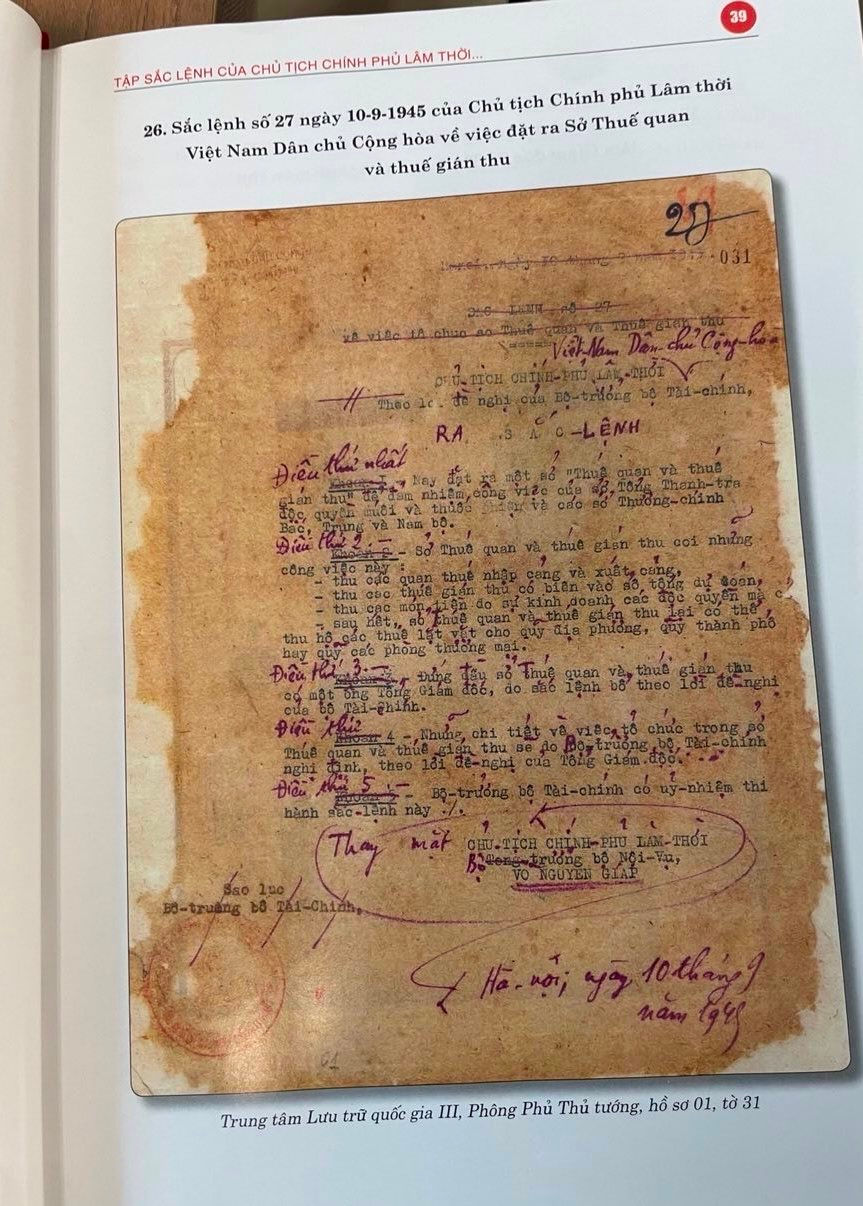 39
TẬP SẮC LỆNH CỦA CHỦ TỊCH CHÍNH PHỦ LÂM THỜI...
26. Sắc lệnh số 27 ngày 10-9-1945 của Chủ tịch Chính phủ Lâm thời
Việt Nam Dân chủ Cộng hòa về việc đặt ra Sở Thuế quan
và thuế gián thu
031
số 27
về việc tổ chức sở Thuế quan và Thuế gián thu
Việt-Nam Dân-chủ Cộng-hòa
CHỦ-TỊCH CHÍNH-PHỦ LÂM-THỜI
Theo lời đề nghị của Bộ-trưởng bộ Tài-chính,
RA SẮC-LỆNH
Điều thứ nhất
Khoản I - Nay đặt ra một sở "Thuế quan và thuế
gián thu" để đảm nhiệm công việc của sở Tổng Thanh-tra
độc quyền muối và thuốc và các sở Thương-chính
Bắc, Trung và Nam bộ.
Điều thứ 2.-
Khoản 2 - Sở Thuế quan và thuế gián thu coi những
công việc này :
- thu các quan thuế nhập cảng và xuất cảng,
- thu các thuế gián thu có biên vào sổ tổng dự đoán,
- thu các món tiền do sự kinh doanh các độc quyền mà có,
- sau hết, sở thuế quan và thuế gián thu lại có thể
thu hộ các thuế lặt vặt cho quỹ địa phương, quỹ thành phố
hay quỹ các phòng thương mại.
Điều thứ 3.-
Khoản 3 - Đứng đầu sở Thuế quan và thuế gián thu
có một ông Tổng Giám đốc, do sắc lệnh bổ theo lời đề-nghị
của bộ Tài-chính.
Điều thứ
Khoản 4 - Những chi tiết về việc tổ chức trong sở
Thuế quan và thuế gián thu sẽ do Bộ-trưởng bộ Tài-chính
nghị định, theo lời đề-nghị của Tổng Giám đốc.
Điều thứ 5.-
Khoản 5 - Bộ-trưởng bộ Tài-chính có uỷ-nhiệm thi
hành sắc-lệnh này ./.
Thay mặt CHỦ-TỊCH CHÍNH-PHỦ LÂM-THỜI
Bộ trưởng bộ Nội-Vụ,
VÕ NGUYÊN GIÁP
Sao lục
Bộ-trưởng bộ Tài-Chính,
Hà-nội, ngày 10 tháng 9
năm 1945
Trung tâm Lưu trữ quốc gia III, Phông Phủ Thủ tướng, hồ sơ 01, tờ 31